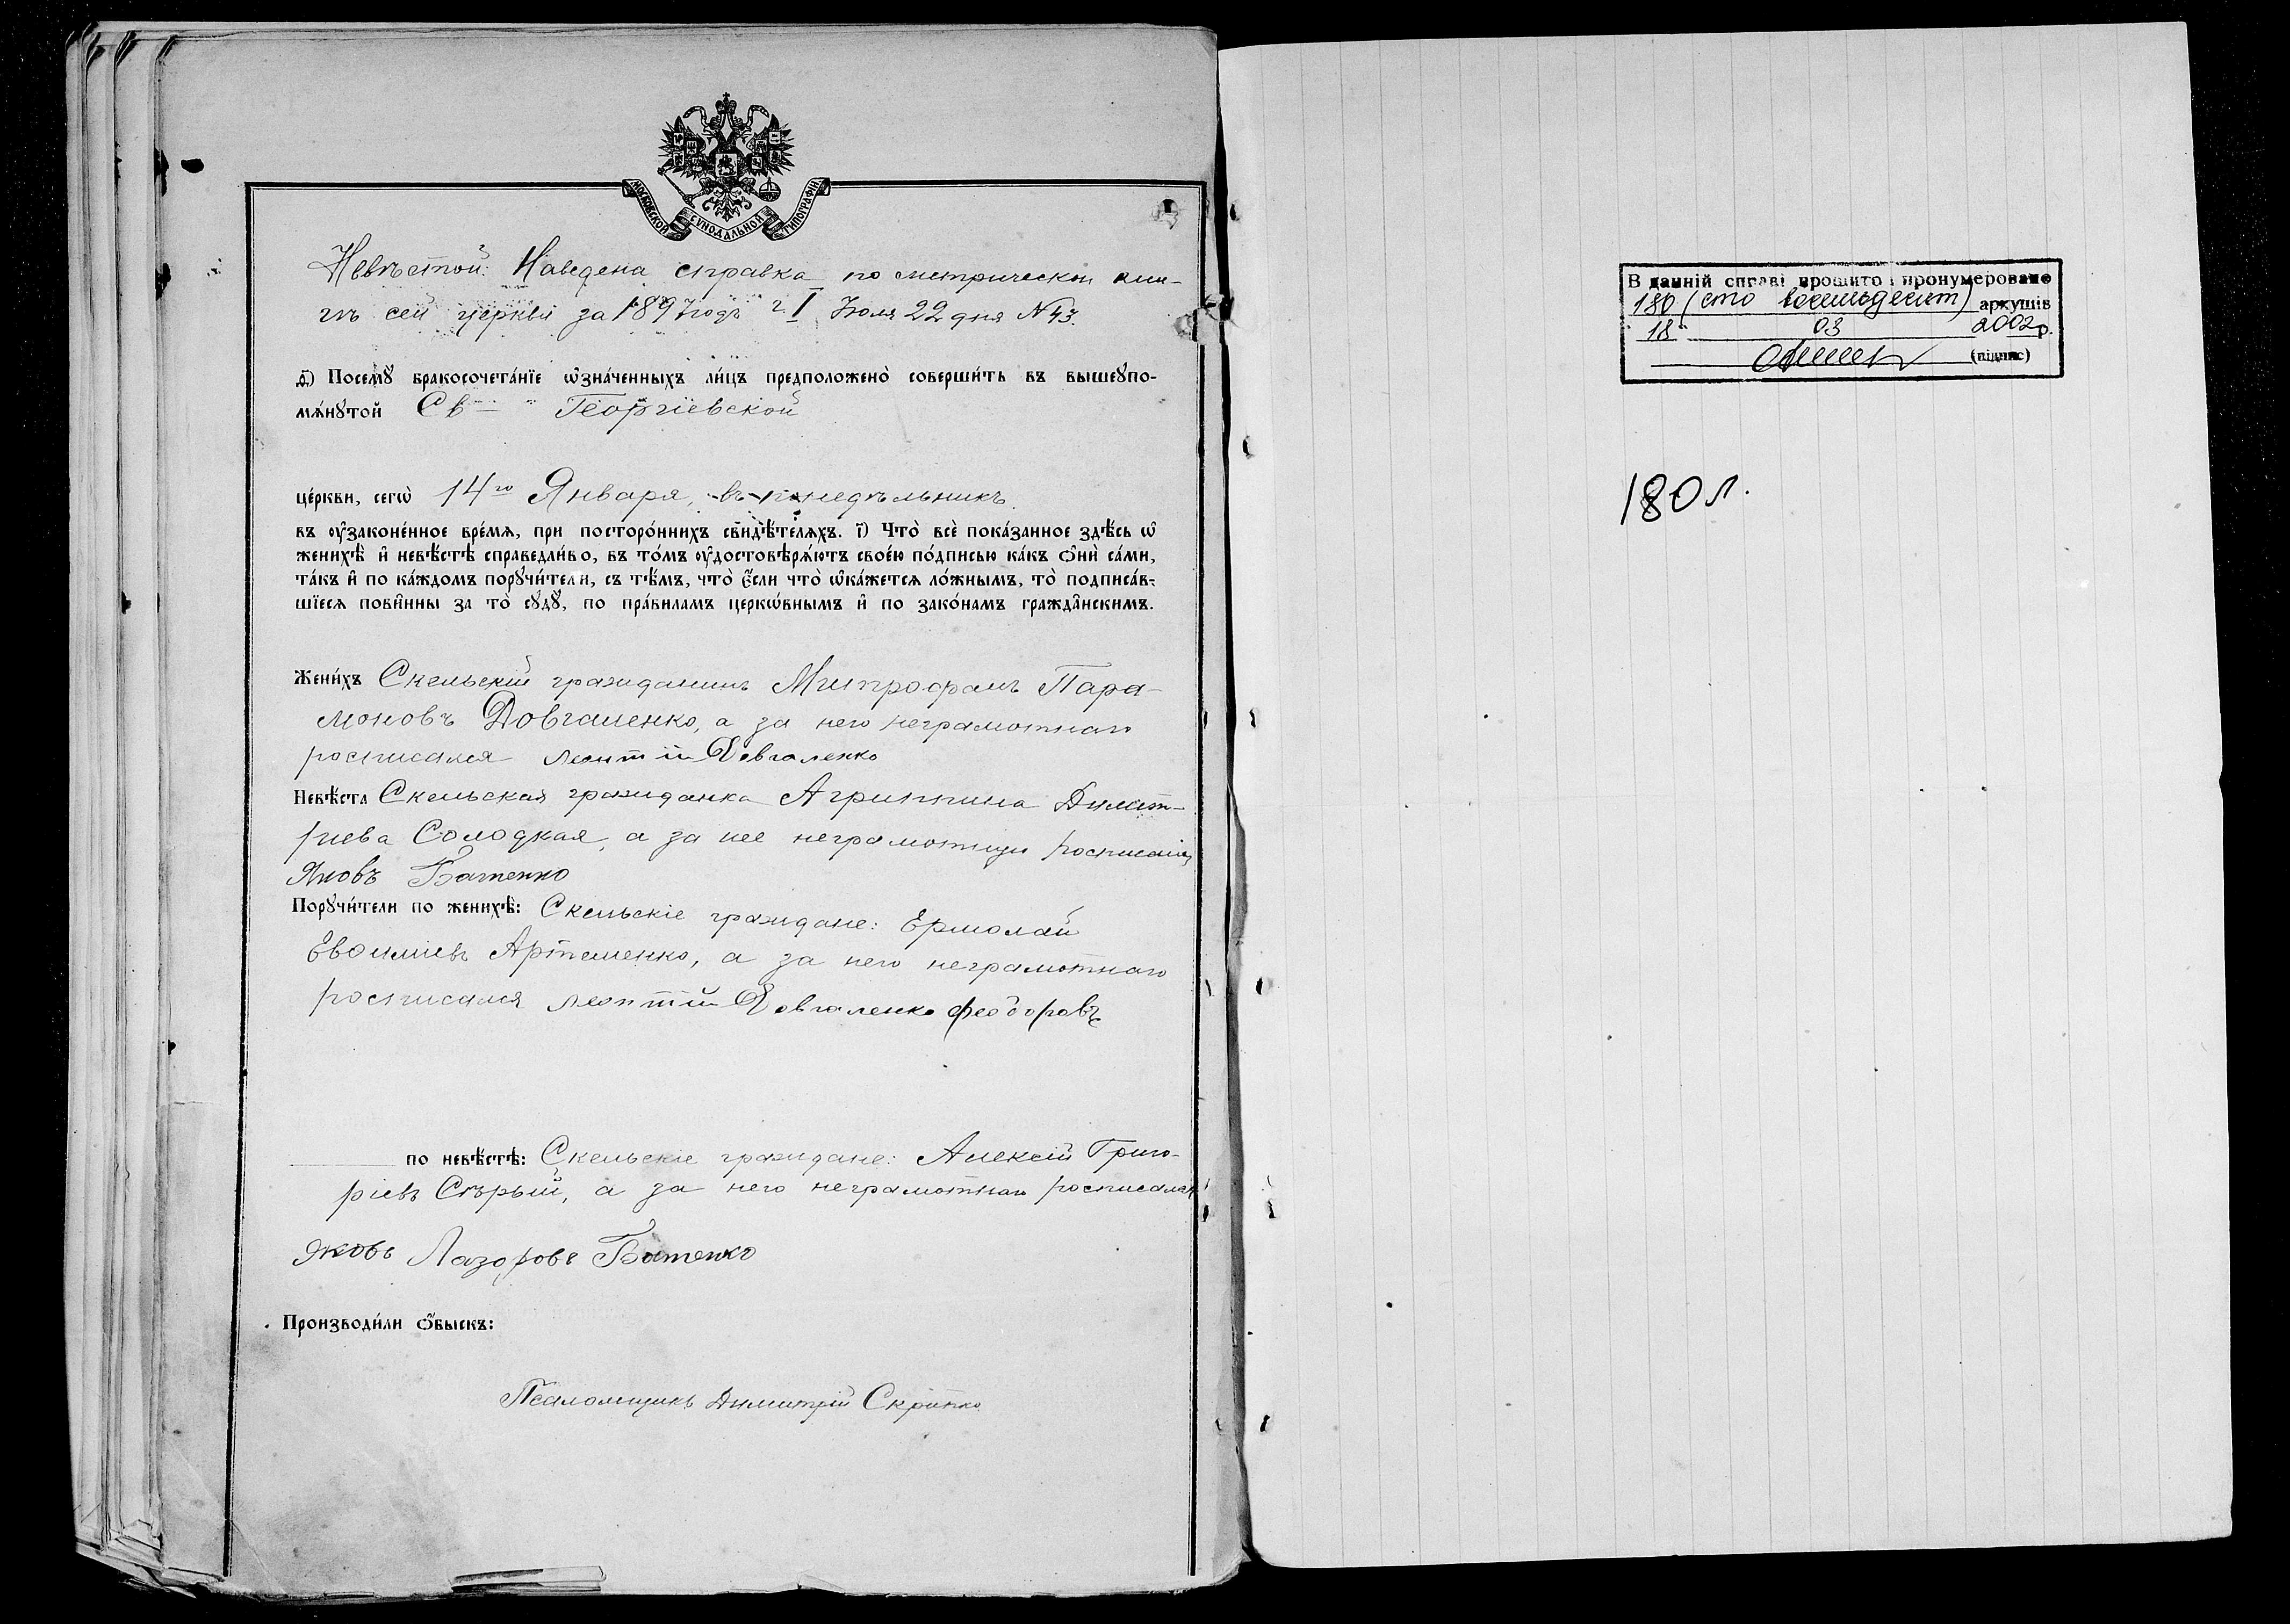 МОСКОВСКОЙ СѴНОДАЛЬНОЙ ТИПОГРАФІИ
Невѣстой: Наведена справка по метрической кни-
гѣ сей церкви за 1897 годъ ч. I Іюля 22 дня №43.
д҃) Посемꙋ̀ бракосочета́нїе ѡ҆зна́ченныхъ ли́цъ предположено̀ соверши́ть въ вышеꙋпо-
мѧ́нꙋтой Св Георгіевской
це́ркви, сегѡ̀ 14го Января, въ понедѣльникъ
въ ᲂу҆законе́нное вре́мѧ, при посторо́ннихъ свидѣ́телѧхъ. і҃) Что̀ всѐ пока́занное здѣ́сь ѡ҆
женихѣ̀ и҆ невѣ́стѣ справедли́во, въ то́мъ ᲂу҆достовѣрѧ́ютъ свое́ю по́дписью ка́къ ѻ҆нѝ са́ми,
та́къ и҆ по ка́ждомъ порꙋчи́тели, съ тѣ́мъ, что̀ є҆́сли что̀ ѡ҆ка́жетсѧ ло́жнымъ, то̀ подписа́в-
шїесѧ пови́нны за то̀ сꙋдꙋ̀, по пра́виламъ церкѡ́внымъ и҆ по зако́намъ гражда́нскимъ.
Жени́хъ Скельскій гражданинъ Митрофанъ Пара-
моновъ Довгаленко, а за него неграмотнаго
росписался Леонтій Довгаленко
Невѣ́ста Скельская гражданка Агриппина Димит-
риева Солодкая, а за нее неграмотную росписался
Яковъ Батенко
Порꙋчи́тели по женихѣ̀: Скельскіе граждане: Ермолай
Евѳиміевъ Артеменко, а за него неграмотнаго
росписался Леонтій Довгаленко Феодоровъ
по невѣ́стѣ: Скельскіе граждане: Алексій Григо-
ріевъ Сѣрый, а за него неграмотнаго росписался
Яковъ Лазоровъ Батенко
Производи́ли ѻ҆́быскъ:
Псаломщикъ Димитрій Скрипко
В данній справі прошито і пронумеровано
180 (сто восемьдесят) аркушів
18 03 2002р.
(підпис)
180 л.